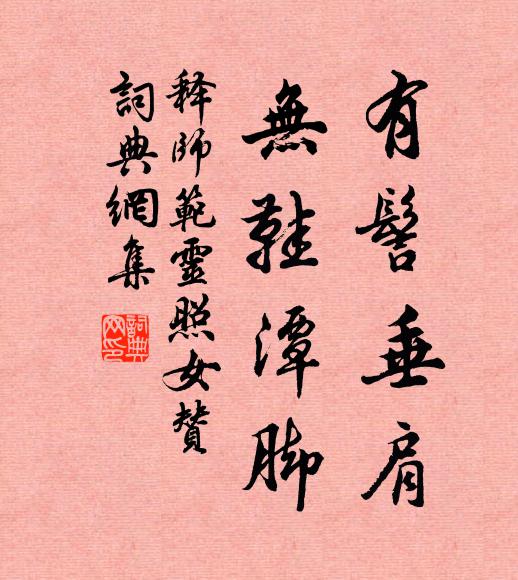 有髻垂肩
無鞋潭脚
释師範靈照女贊
詞典網集
詞典網印